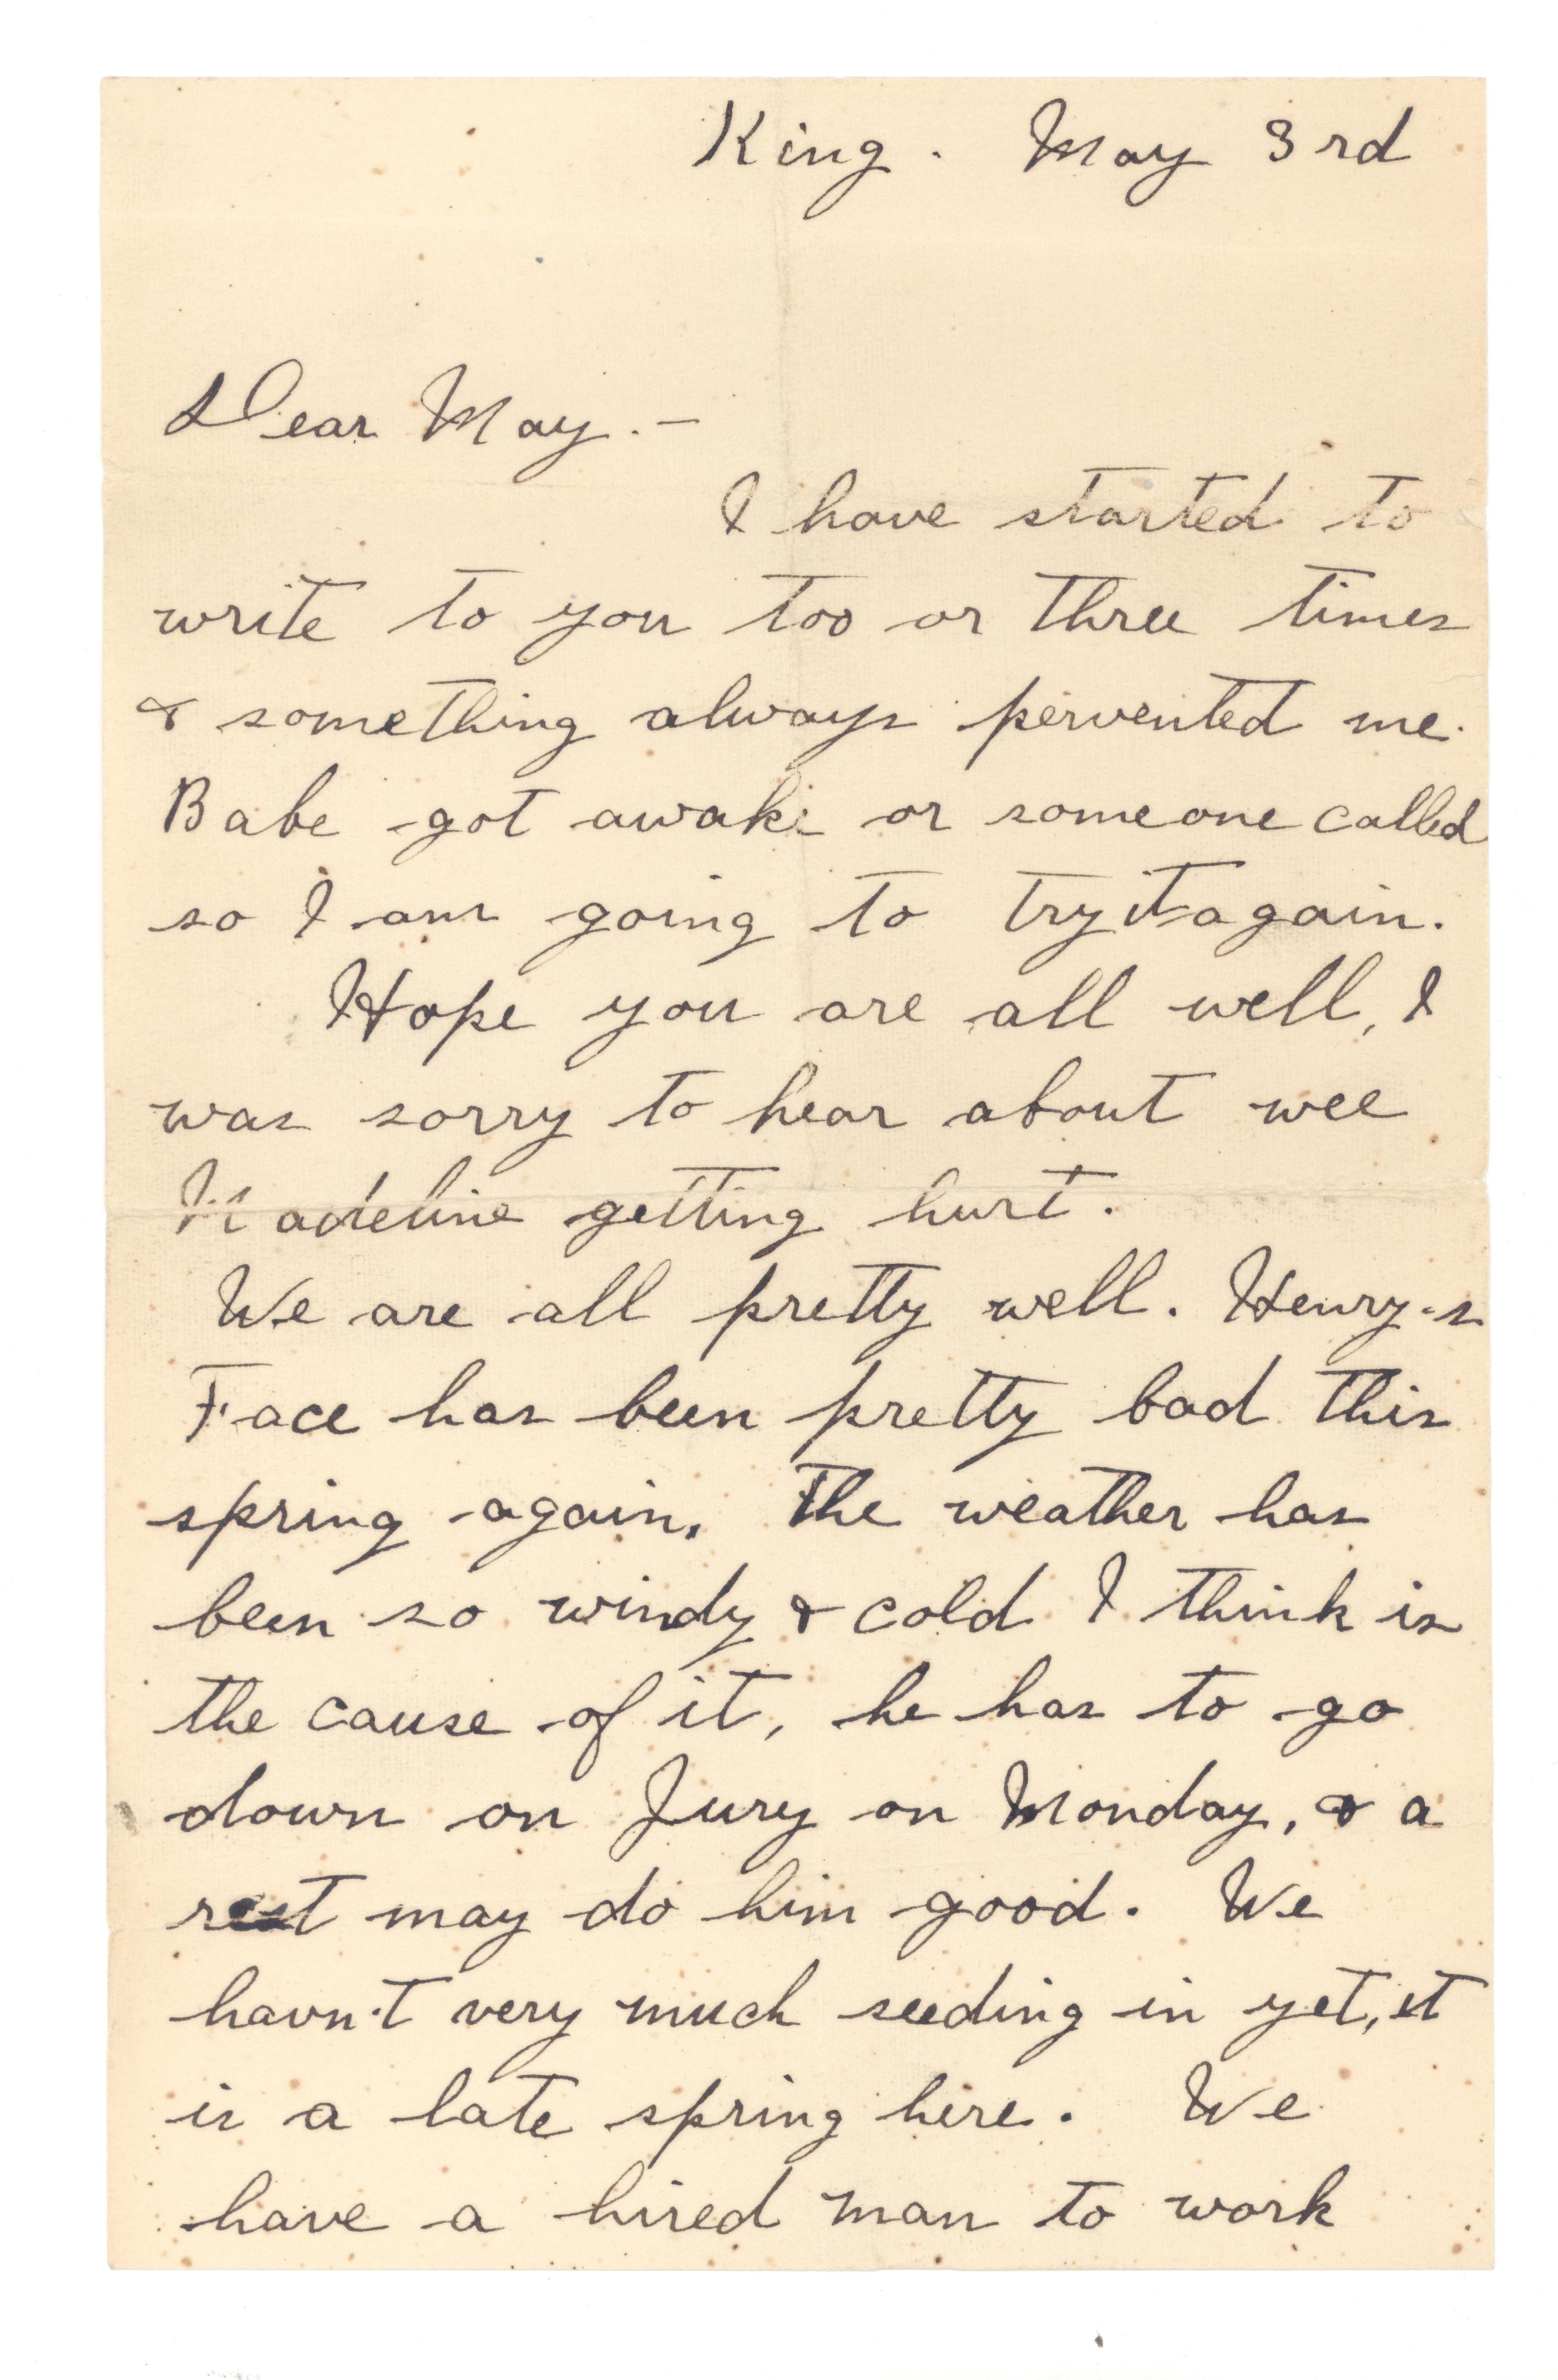 King. May 3rd
Dear May.-
I have started to
write to you too or three times
& something always pervented me.
Babe got awake or someone called
so I am going to try it again.
Hope you are all well, I
was sorry to hear about wee
Madeline getting hurt.
We are all pretty well. Henry-s
Face has been pretty bad this
spring again. The weather has
been so windy & cold I think is
the cause of it, he has to go
down on Jury on Monday, & a
rest may do him good. We
havn't very much seeding in yet, it
is a late spring here. We
have a hired man to work